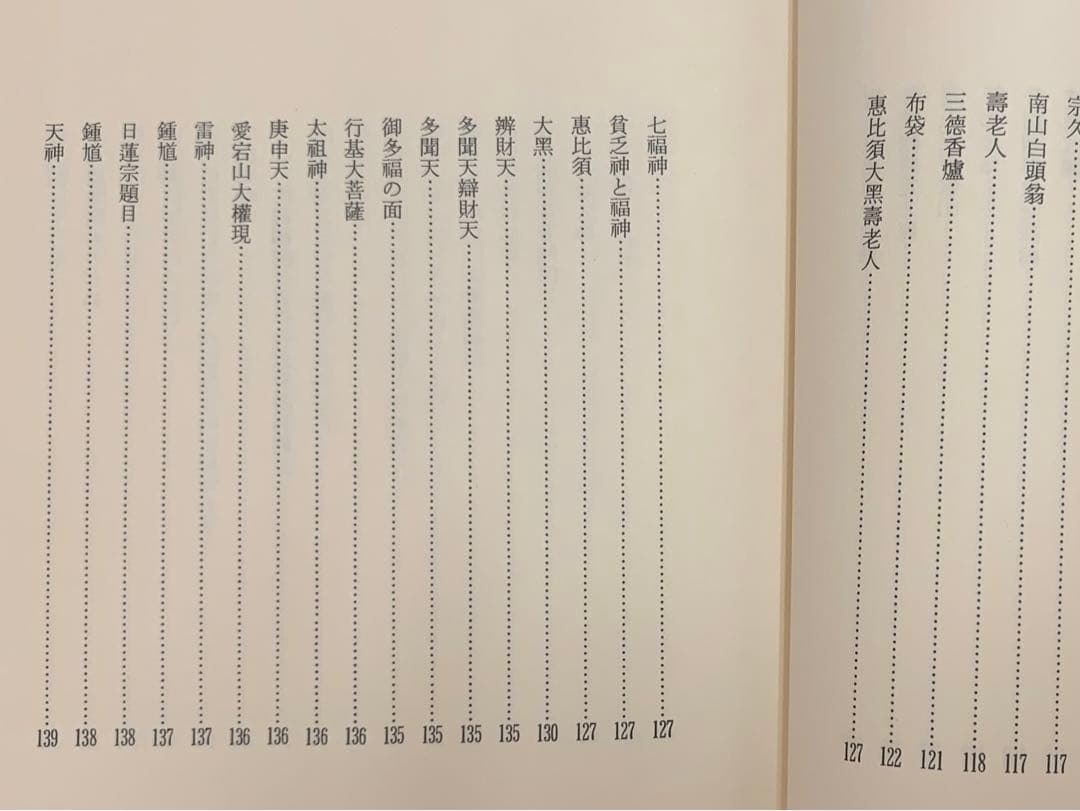 宗久
南山白頭翁……117
壽老人……117
三德香爐……118
布袋……121
惠比須大黑壽老人……127
七福神……127
貧乏神と福神……127
惠比須……127
大黑……130
辨財天……135
多聞天辯財天……135
多聞天……135
御多福の面……135
行基大菩薩……136
太祖神……136
庚申天……136
愛宕山大權現……136
雷神……137
鍾馗……137
日蓮宗題目……138
鍾馗……138
天神……139